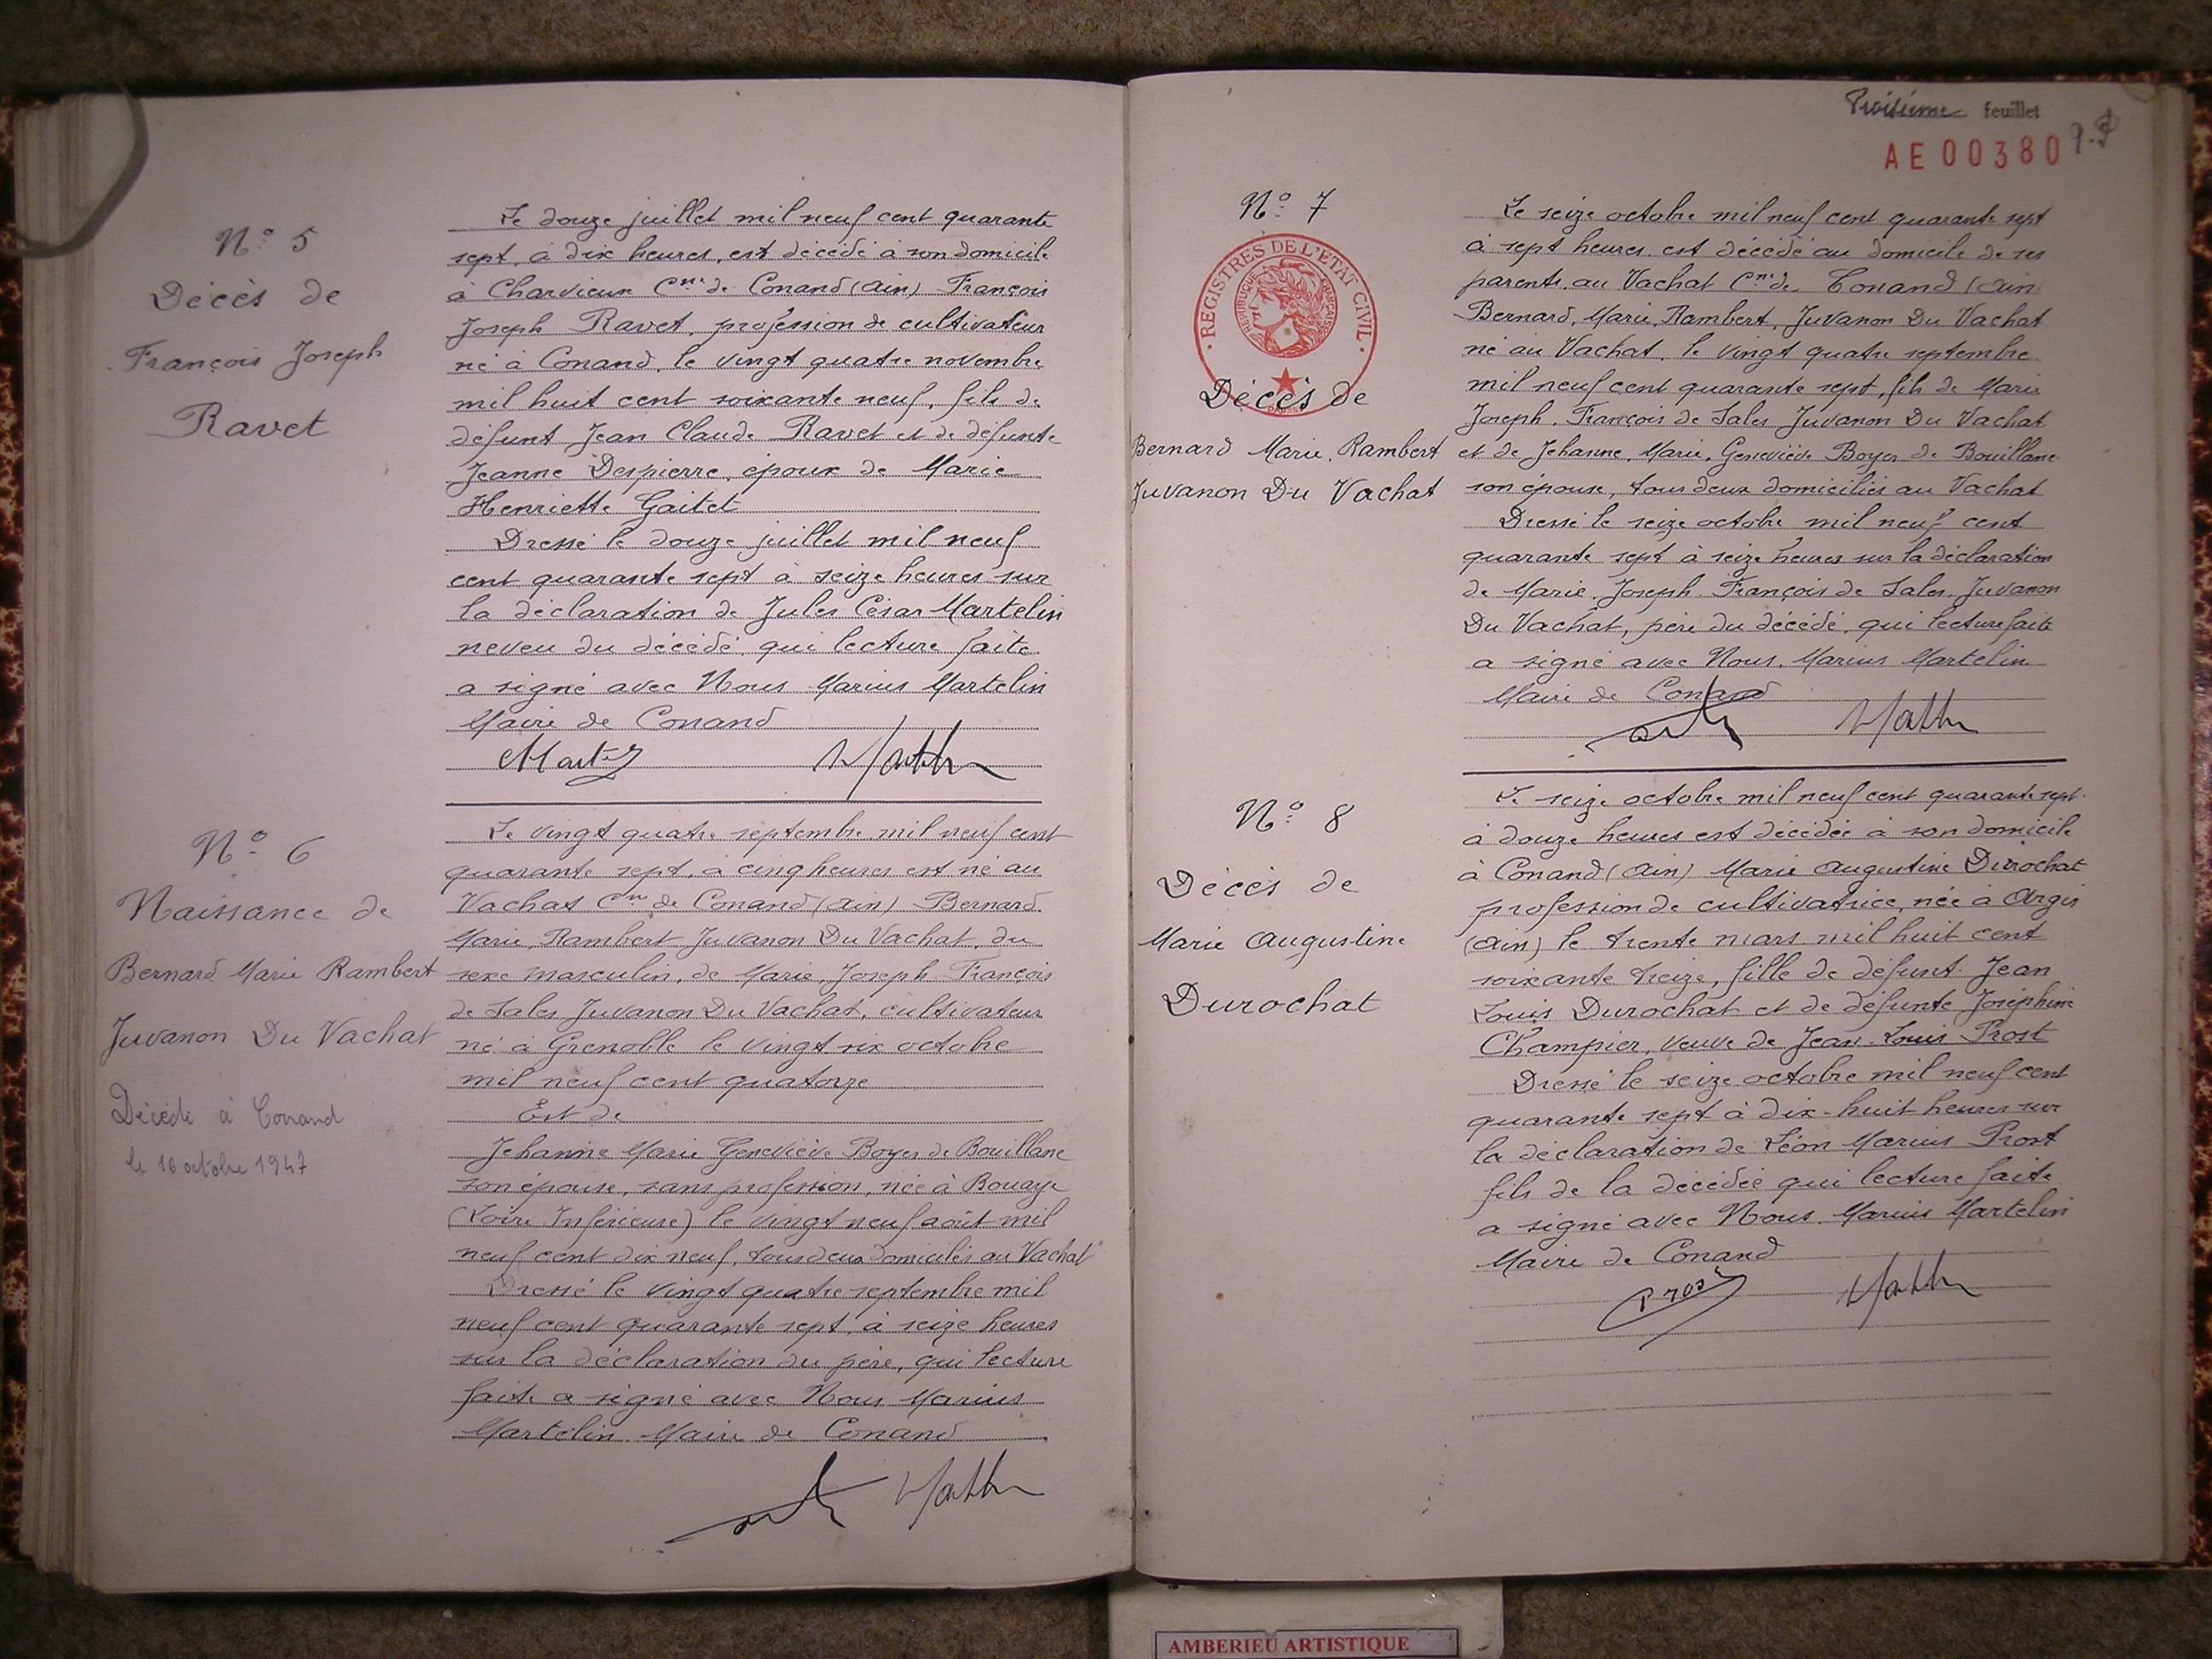 N° 5
Décès de
François Joseph
Ravet
Le douze juillet mil neuf cent quarante
sept, à dix heures, est décédé à son domicile
à Charvieux Cne de Conand (Ain) François
Joseph Ravet, profession de cultivateur
né à Conand, le vingt quatre novembre
mil huit cent soixante neuf, fils de
défunt Jean Claude Ravet et de défunte
Jeanne Despierre, époux de Marie
Henriette Gaitet
Dressé le douze juillet mil neuf
cent quarante sept à seize heures sur
la déclaration de Jules César Martelin
neveu du décédé, qui lecture faite
a signé avec Nous Marius Martelin
Maire de Conand
N° 6
Naissance de
Bernard Marie Rambert
Juvanon Du Vachat
Décédé à Conand
le 16 octobre 1947
Le vingt quatre septembre mil neuf cent
quarante sept, à cinq heures est né au
Vachat Cne de Conand (Ain) Bernard
Marie, Rambert Juvanon Du Vachat, du
sexe masculin, de Marie, Joseph François
de Sales Juvanon Du Vachat, cultivateur
né à Grenoble le vingt six octobre
mil neuf cent quatorze
Est de
Jehanne Marie Geneviève Boyer de Bouillane
son épouse, sans profession, née à Bouaye
(Loire Inférieure) le vingt neuf août mil
neuf cent dix neuf, tous deux domiciliés au Vachat
Dressé le vingt quatre septembre mil
neuf cent quarante sept, à seize heures
sur la déclaration du père, qui lecture
faite a signé avec Nous Marius
Martelin Maire de Conand
Troisième feuillet
AE 00380
N° 7
REGISTRES DE L'ETAT CIVIL
REPUBLIQUE FRANÇAISE
Décès de
Bernard Marie Rambert
Juvanon Du Vachat
Le seize octobre mil neuf cent quarante sept
à sept heures est décédé au domicile de ses
parents au Vachat Cne de Conand (Ain)
Bernard, Marie, Rambert, Juvanon Du Vachat
né au Vachat, le vingt quatre septembre
mil neuf cent quarante sept, fils de Marie
Joseph, François de Sales Juvanon Du Vachat
et de Jehanne, Marie, Geneviève Boyer de Bouillane
son épouse, tous deux domiciliés au Vachat
Dressé le seize octobre mil neuf cent
quarante sept à seize heures sur la déclaration
de Marie, Joseph François de Sales Juvanon
Du Vachat, père du décédé, qui lecture faite
a signé avec Nous, Marius Martelin
Maire de Conand
N° 8
Décès de
Marie Augustine
Durochat
Le seize octobre mil neuf cent quarante sept
à douze heures est décédée à son domicile
à Conand (Ain) Marie Augustine Durochat
profession de cultivatrice, née à Argis
(Ain) le trente mars mil huit cent
soixante treize, fille de défunt Jean
Louis Durochat et de défunte Joséphine
Champier, veuve de Jean-Louis Prost
Dressé le seize octobre mil neuf cent
quarante sept à dix-huit heures sur
la déclaration de Léon Marius Prost
fils de la décédée qui lecture faite
a signé avec Nous Marius Martelin
Maire de Conand
Prost
AMBERIEU ARTISTIQUE